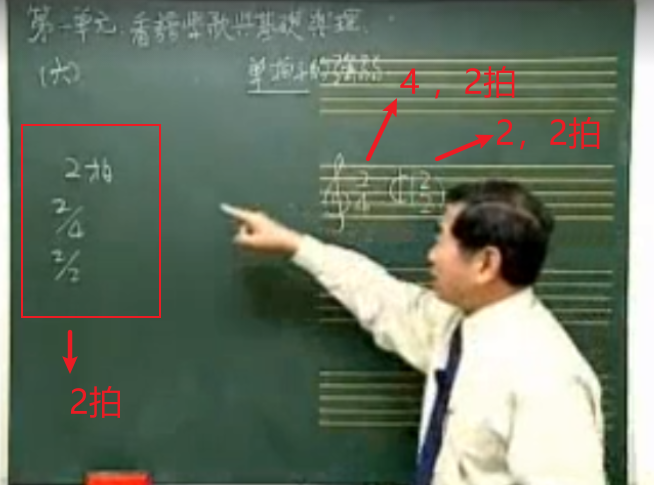 第一单元.看譜學歌與基礎樂理.
(六)
單拍子的強弱
4，2拍
2，2拍
2拍
2/4
2/2
2
4
¢(2
2)
2拍